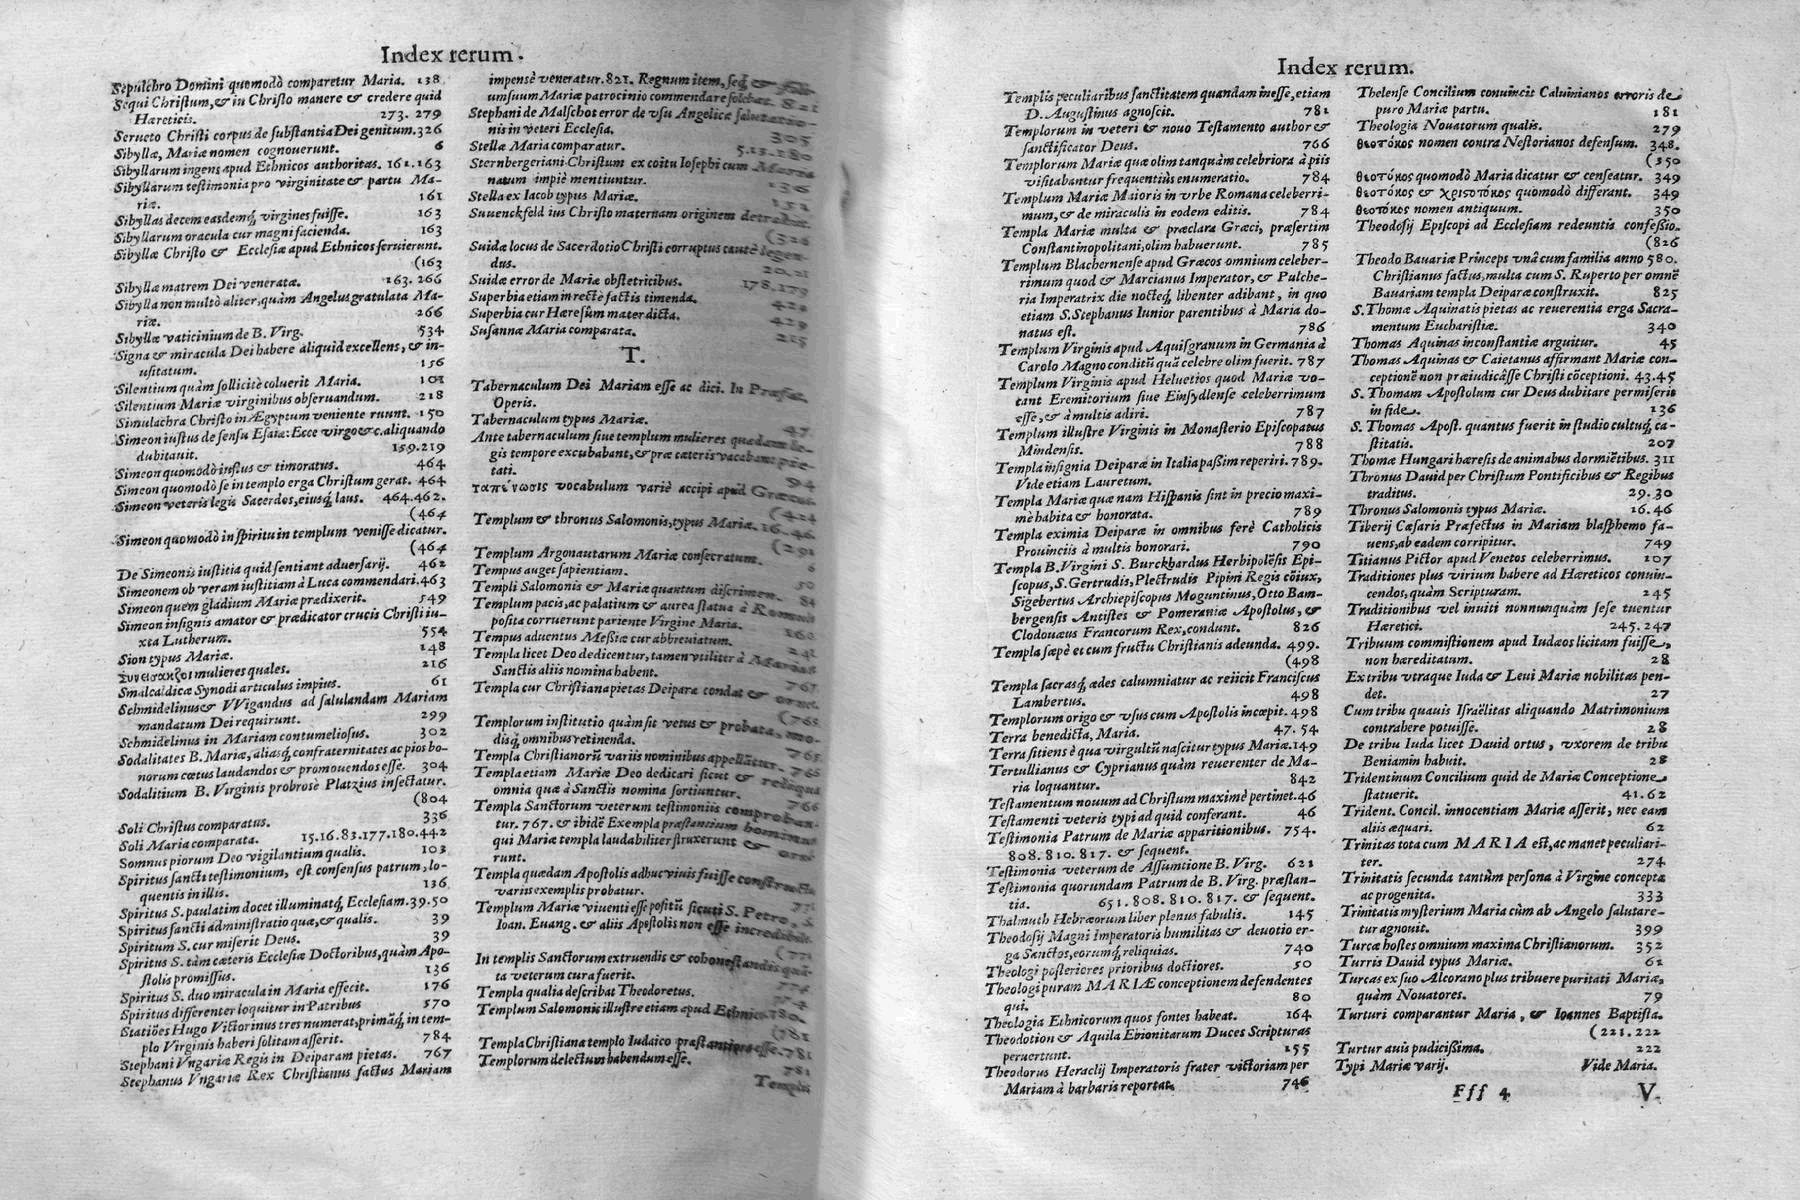 Index rerum.
Sepulchro Domini quomodò comparetur Maria. 138
Sequi Christum, & in Christo manere & credere quid
Hæreticis. 273. 279
Serueto Christi corpus de substantia Dei genitum. 326
Sibyllæ, Mariæ nomen cognouerunt. 6
Sibyllarum ingens apud Ethnicos authoritas. 161. 163
Sibyllarum testimonia pro virginitate & partu Ma-
riæ. 161
Sibyllas decem easdemq́ virgines fuisse. 163
Sibyllarum oracula cur magni facienda. 163
Sibyllæ Christo & Ecclesiæ apud Ethnicos seruierunt.
(163
Sibyllæ matrem Dei veneratæ. 163. 266
Sibylla non multò aliter, quàm Angelus gratulata Ma-
riæ. 266
Sibyllæ vaticinium de B. Virg. 534
Signa & miracula Dei habere aliquid excellens, & in-
usitatum. 156
Silentium quàm sollicitè coluerit Maria. 101
Silentium Mariæ virginibus obseruandum. 218
Simulachra Christo in Ægyptum veniente ruunt. 150
Simeon iustus de sensu Esaiæ: Ecce virgo &c. aliquando
dubitauit. 159. 219
Simeon quomodò iustus & timoratus. 464
Simeon quomodò se in templo erga Christum gerat. 464
Simeon veteris legis Sacerdos, eiusq́ laus. 464. 462.
(464
Simeon quomodò in spiritu in templum venisse dicatur.
(464
De Simeonis iustitia quid sentiant aduersarij. 462
Simeonem ob veram iustitiam à Luca commendari. 463
Simeon quem gladium Mariæ prædixerit. 549
Simeon insignis amator & prædicator crucis Christi iu-
xta Lutherum. 554
Sion typus Mariæ. 148
Συνεισακ]οι mulieres quales. 216
Smalcaldicæ Synodi articulus impius. 61
Schmidelinus & VVigandus ad salulandam Mariam
mandatum Dei requirunt. 299
Schmidelinus in Mariam contumeliosus. 302
Sodalitates B. Mariæ, aliasq́ confraternitates ac pios bo-
norum cœtus laudandos & promouendos esse. 304
Sodalitium B. Virginis probrosè Platzius insectatur.
(804
Soli Christus comparatus. 336
Soli Maria comparata. 15. 16. 83. 177. 180. 442
Somnus piorum Deo vigilantium qualis. 103
Spiritus sancti testimonium, est consensus patrum, lo-
quentis in illis. 136
Spiritus S. paulatim docet illuminatq́ Ecclesiam. 39. 50
Spiritus sancti administratio quæ, & qualis. 39
Spiritum S. cur miserit Deus. 39
Spiritus S. tàm cæteris Ecclesiæ Doctoribus, quàm Apo-
stolis promissus. 136
Spiritus S. duo miracula in Maria effecit. 176
Spiritus differenter loquitur in Patribus 570
Statiões Hugo Victorinus tres numerat, primāq́ in tem-
plo Virginis haberi solitam asserit. 784
Stephani Vngariæ Regis in Deiparam pietas. 767
Stephanus Vngariæ Rex Christianus factus Mariam
impensè veneratur. 821. Regnum item, seq́ &
um suum Mariæ patrocinio commendare solebat. 821
Stephani de Malschot error de vsu Angelicæ salutatio-
nis in veteri Ecclesia. 305
Stellæ Maria comparatur. 5. 15. 180
Sternbergeriani Christum ex coitu Iosephi cum Maria
natum impiè mentiuntur. 136
Stella ex Iacob typus Mariæ. 152
Suuenckfeld ius Christo maternam originem detrahit.
(326
Suidæ locus de Sacerdotio Christi corruptus cautè legen-
dus. 20. 21
Suidæ error de Mariæ obstetricibus. 178. 179
Superbia etiam in rectè factis timenda. 429
Superbia cur Hæresum mater dicta. 429
Susannæ Maria comparata. 215
T.
Tabernaculum Dei Mariam esse ac dici. In Præfat.
Operis.
Tabernaculum typus Mariæ. 47
Ante tabernaculum siue templum mulieres quædam le-
gis tempore excubabant, & præ cæteris vacabant pie-
tati. 94
ταπείνωσις vocabulum variè accipi apud Græcos.
(424
Templum & thronus Salomonis, typus Mariæ. 16. 46.
(291
Templum Argonautarum Mariæ consecratum. 6
Tempus auget sapientiam. 50
Templi Salomonis & Mariæ quantum discrimen. 81
Templum pacis, ac palatium & aurea statua à Romulo
posita corruerunt pariente Virgine Maria. 160
Tempus aduentus Messiæ cur abbreuiatum. 241
Templa licet Deo dedicentur, tamen vtiliter à Maria &
Sanctis aliis nomina habent. 767
Templa cur Christiana pietas Deiparæ condat & ornet.
(765
Templorum institutio quàm sit vetus & probata, mo-
disq́ omnibus retinenda. 765
Templa Christianorū variis nominibus appellātur. 765
Templa etiam Mariæ Deo dedicari sicut & reliqua
omnia quæ à Sanctis nomina sortiuntur. 766
Templa Sanctorum veterum testimoniis comproban-
tur. 767. & ibidē Exempla præstantium hominum
qui Mariæ templa laudabiliter struxerunt &
runt.
Templa quædam Apostolis adhuc viuis fuisse constructa
variis exemplis probatur.
Templum Mariæ viuenti esse positū sicuti S. Petro, S.
Ioan. Euang. & aliis Apostolis non esse incredibile.
In templis Sanctorum extruendis & cohonestandis quā-
ta veterum cura fuerit. 774
Templa qualia describat Theodoretus. 774
Templum Salomonis illustre etiam apud Ethnicos. 780.
(781
Templa Christiana templo Iudaico præstantiora esse. 781
Templorum delectum habendum esse. 781
Templis
Index rerum.
Templis peculiaribus sanctitatem quandam inesse, etiam
D. Augustinus agnoscit. 781
Templorum in veteri & nouo Testamento author &
sanctificator Deus. 766
Templorum Mariæ quæ olim tanquàm celebriora à piis
visitabantur frequentiùs enumeratio. 784
Templum Mariæ Maioris in vrbe Romana celeberri-
mum, & de miraculis in eodem editis. 784
Templa Mariæ multa & præclara Græci, præsertim
Constantinopolitani, olim habuerunt. 785
Templum Blachernense apud Græcos omnium celeber-
rimum quod & Marcianus Imperator, & Pulche-
ria Imperatrix die nocteq́ libenter adibant, in quo
etiam S. Stephanus Iunior parentibus à Maria do-
natus est. 786
Templum Virginis apud Aquisgranum in Germania à
Carolo Magno conditū quā celebre olim fuerit. 787
Templum Virginis apud Heluetios quod Mariæ vo-
tant Eremitorium siue Einsydlense celeberrimum
esse, & à multis adiri. 787
Templum illustre Virginis in Monasterio Episcopatus
Mindensis. 788
Templa insignia Deiparæ in Italia passim reperiri. 789.
Vide etiam Lauretum.
Templa Mariæ quæ nam Hispanis sint in precio maxi-
mè habita & honorata. 789
Templa eximia Deiparæ in omnibus ferè Catholicis
Prouinciis à multis honorari. 790
Templa B. Virgini S. Burckhardus Herbipolēsis Epi-
scopus, S. Gertrudis, Plectrudis Pipini Regis cōiux,
Sigebertus Archiepiscopus Moguntinus, Otto Bam-
bergensis Antistes & Pomeraniæ Apostolus, &
Clodouæus Francorum Rex, condunt. 826
Templa sæpè et cum fructu Christianis adeunda. 499.
(498
Templa sacrasq́ ædes calumniatur ac reiicit Franciscus
Lambertus. 498
Templorum origo & vsus cum Apostolis incœpit. 498
Terra benedicta, Maria. 47. 54
Terra sitiens è qua virgultū nascitur typus Mariæ. 149
Tertullianus & Cyprianus quàm reuerenter de Ma-
ria loquantur. 842
Testamentum nouum ad Christum maximè pertinet. 46
Testamenti veteris typi ad quid conferant. 46
Testimonia Patrum de Mariæ apparitionibus. 754.
808. 810. 817. & sequent.
Testimonia veterum de Assumtione B. Virg. 621
Testimonia quorundam Patrum de B. Virg. præstan-
tia. 651. 808. 810. 817. & sequent.
Thalmuth Hebræorum liber plenus fabulis. 145
Theodosij Magni Imperatoris humilitas & deuotio er-
ga Sanctos, eorumq́ reliquias. 740
Theologi posteriores prioribus doctiores. 50
Theologi puram MARIÆ conceptionem defendentes
qui. 80
Theologia Ethnicorum quos fontes habeat. 164
Theodotion & Aquila Ebionitarum Duces Scripturas
peruertunt. 155
Theodorus Heraclij Imperatoris frater victoriam per
Mariam à barbaris reportat. 746
Thelense Concilium conuincit Caluinianos erroris de
puro Mariæ partu. 181
Theologia Nouatorum qualis. 279
θεοτόκος nomen contra Nestorianos defensum. 348.
(350
θεοτόκος quomodò Maria dicatur & censeatur. 349
θεοτόκος & χριστοτόκος quomodò differant. 349
θεοτόκος nomen antiquum. 350
Theodosij Episcopi ad Ecclesiam redeuntis confessio.
(826
Theodo Bauariæ Princeps vnâ cum familia anno 580.
Christianus factus, multa cum S. Ruperto per omnē
Bauariam templa Deiparæ construxit. 825
S. Thomæ Aquinatis pietas ac reuerentia erga Sacra-
mentum Eucharistiæ. 340
Thomas Aquinas inconstantiæ arguitur. 45
Thomas Aquinas & Caietanus affirmant Mariæ con-
ceptionē non præiudicâsse Christi cōceptioni. 43. 45
S. Thomam Apostolum cur Deus dubitare permiserit
in fide. 136
S. Thomas Apost. quantus fuerit in studio cultuq́ ca-
stitatis. 207
Thomæ Hungari hæresis de animabus dormiētibus. 311
Thronus Dauid per Christum Pontificibus & Regibus
traditus. 29. 30
Thronus Salomonis typus Mariæ. 16. 46
Tiberij Cæsaris Præfectus in Mariam blasphemo fa-
uens, ab eadem corripitur. 749
Titianus Pictor apud Venetos celeberrimus. 107
Traditiones plus virium habere ad Hæreticos conuin-
cendos, quàm Scripturam. 245
Traditionibus vel inuiti nonnunquàm sese tuentur
Hæretici. 245. 247
Tribuum commistionem apud Iudæos licitam fuisse,
non hæreditatum. 28
Ex tribu vtraque Iuda & Leui Mariæ nobilitas pen-
det. 27
Cum tribu quauis Israëlitas aliquando Matrimonium
contrahere potuisse. 28
De tribu Iuda licet Dauid ortus, vxorem de tribu
Beniamin habuit. 28
Tridentinum Concilium quid de Mariæ Conceptione
statuerit. 41. 62
Trident. Concil. innocentiam Mariæ asserit, nec eam
aliis æquari. 62
Trinitas tota cum MARIA est, ac manet peculiari-
ter. 274
Trinitatis secunda tantùm persona à Virgine concepta
ac progenita. 333
Trinitatis mysterium Maria cùm ab Angelo salutare-
tur agnouit. 399
Turcæ hostes omnium maxima Christianorum. 352
Turris Dauid typus Mariæ. 62
Turcas ex suo Alcorano plus tribuere puritati Mariæ,
quàm Nouatores. 79
Turturi comparantur Maria, & Ioannes Baptista.
(221. 222
Turtur auis pudicissima. 222
Typi Mariæ varij. Vide Maria.
Fff 4 V.